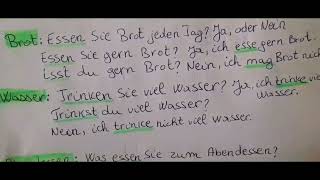 Brot: Essen Sie Brot jeden Tag? Ja, oder Nein
Essen Sie gern Brot? Ja, ich esse gern Brot.
Isst du gern Brot? Nein, ich mag Brot nicht
Wasser: Trinken Sie viel Wasser? Ja, ich trinke viel
Wasser.
Trinkst du viel Wasser?
Nein, ich trinke nicht viel Wasser.
Was essen Sie zum Abendessen?